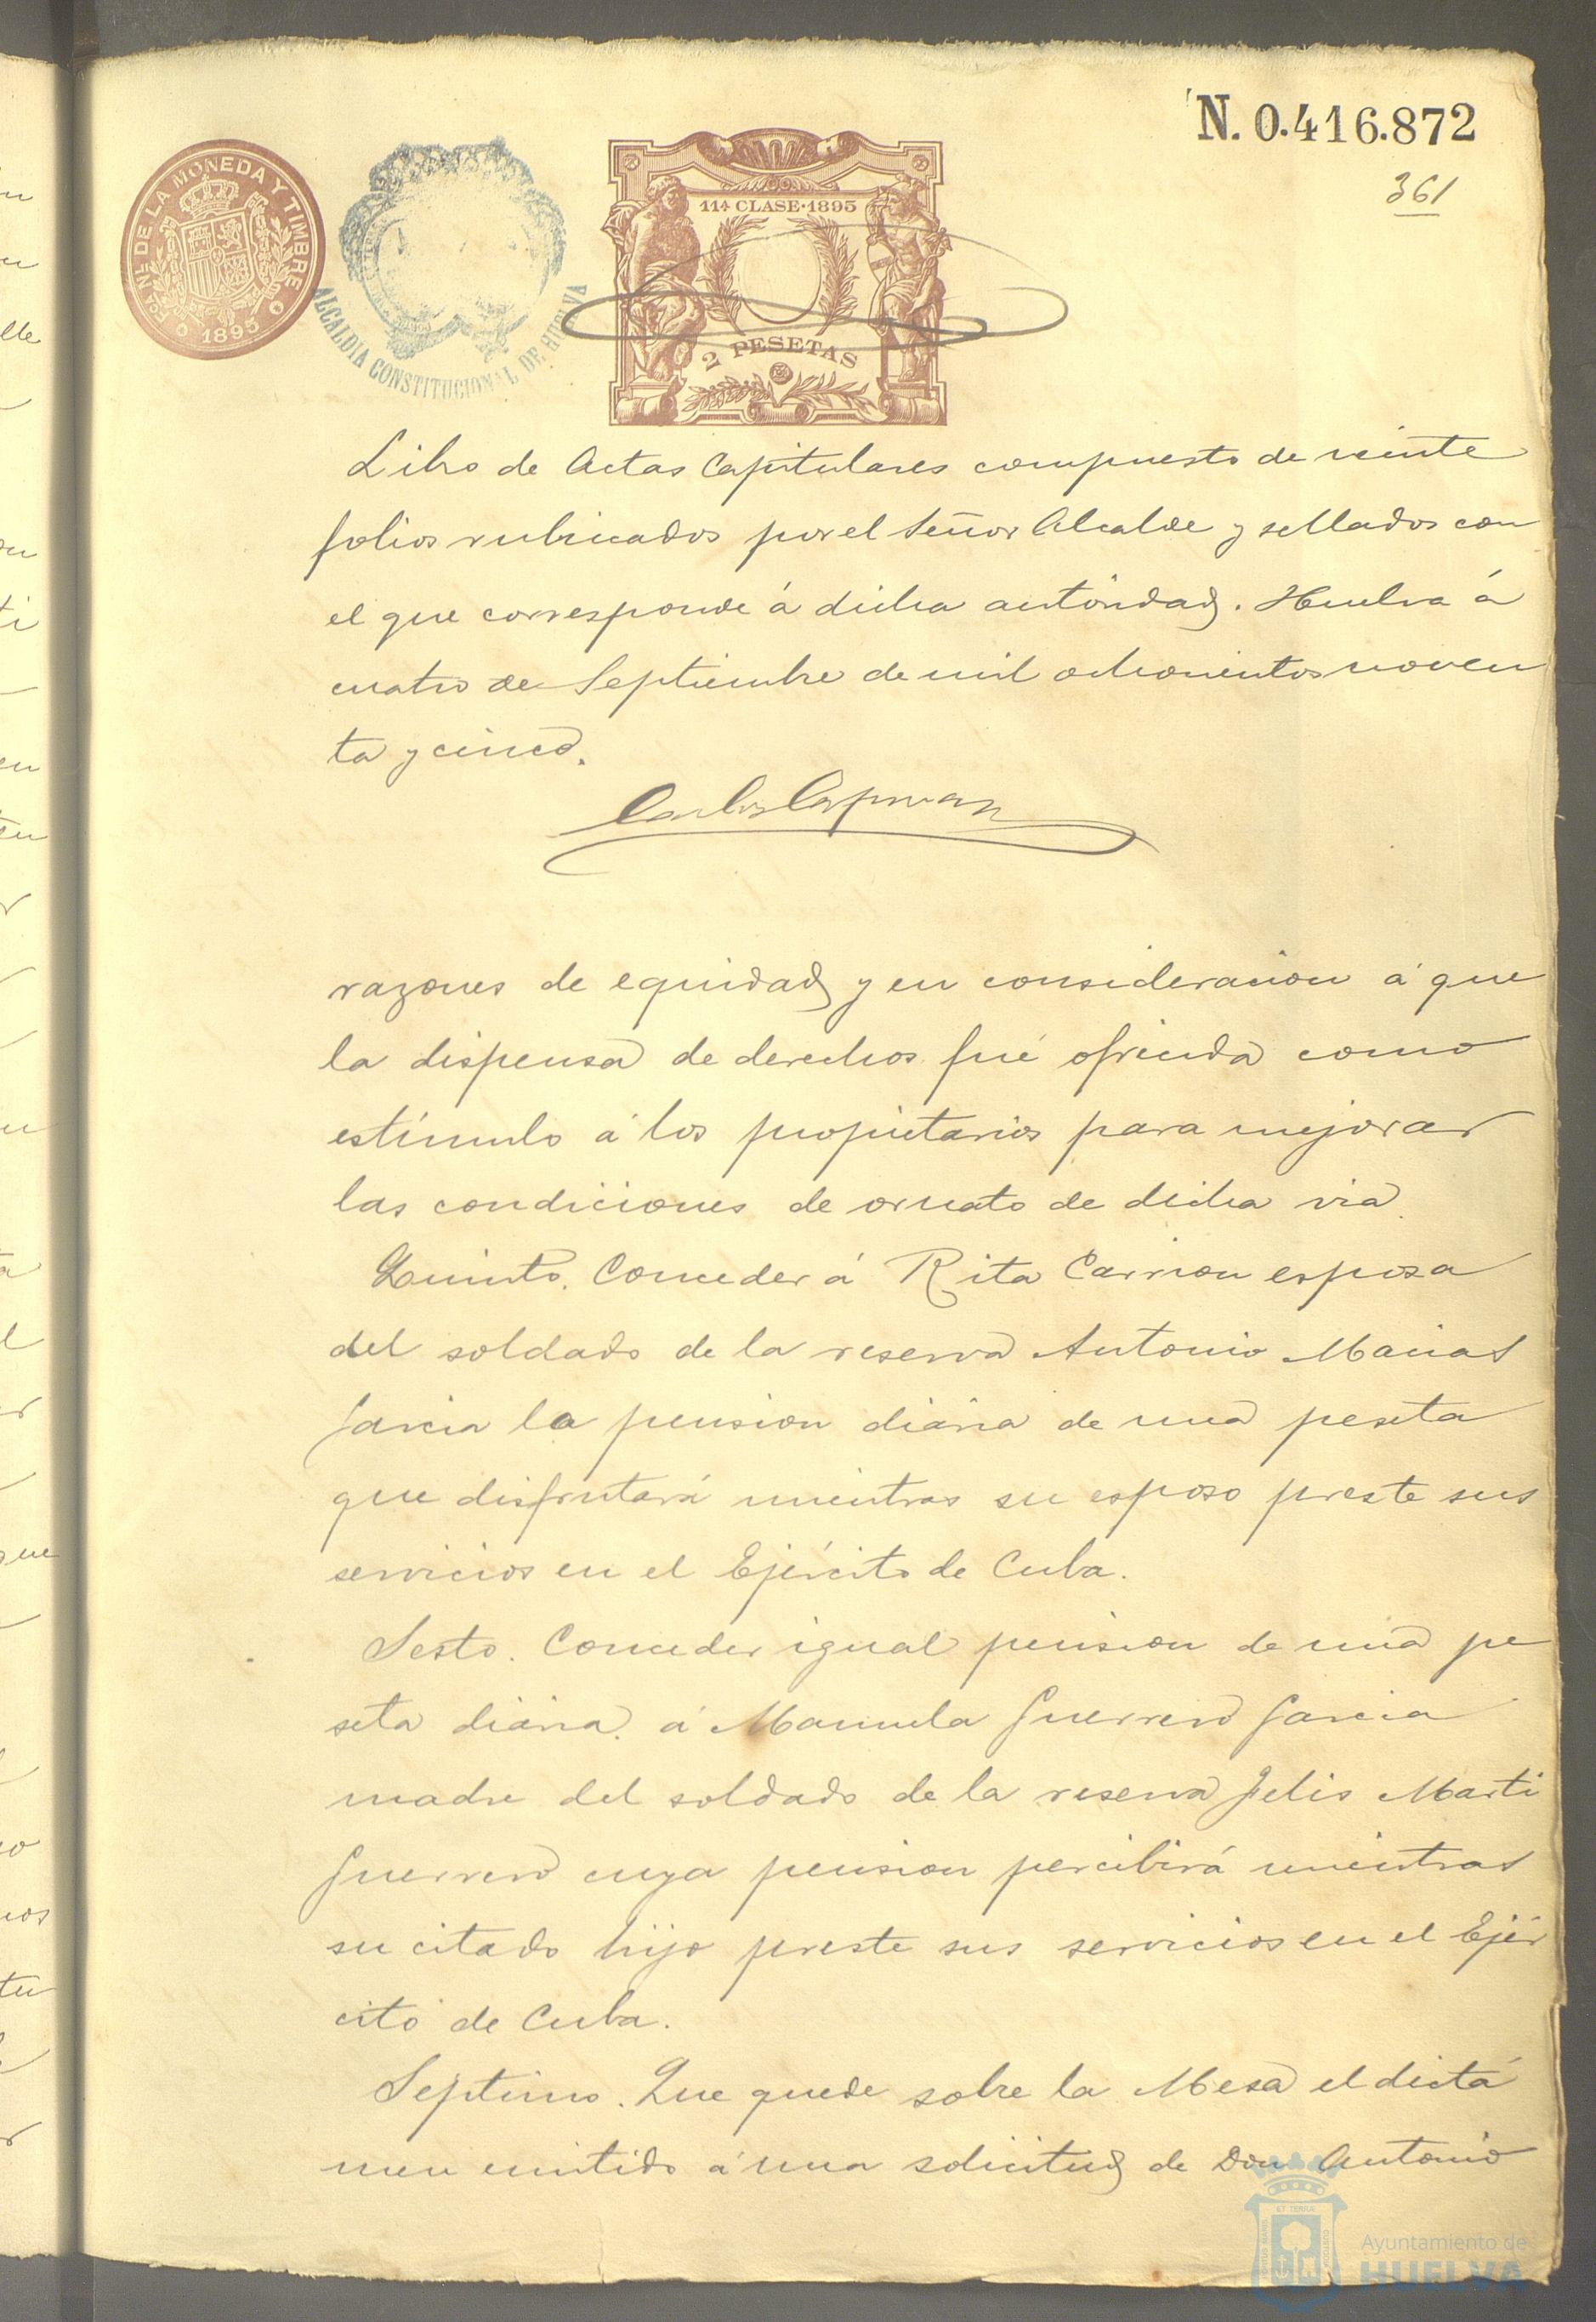 N. 0.416.872
361
FCA. NL. DE LA MONEDA Y TIMBRE
1895
ALCALDIA CONSTITUCIONAL DE HUELVA
11ª CLASE·1895
2 PESETAS
Libro de Actas Capitulares compuesto de veinte
folios rubricados por el Señor Alcalde y sellados con
el que corresponde á dicha autoridad. Huelva á
cuatro de Septiembre de mil ochocientos noven
ta y cinco.
razones de equidad y en consideracion á que
la dispensa de derechos fué ofrecida como
estímulo á los propietarios para mejorar
las condiciones de ornato de dicha via.
Quinto. Conceder á Rita Carrion esposa
del soldado de la reserva Antonio Macias
Garcia la pension diaria de una peseta
que disfrutará mientras su esposo preste sus
servicios en el Ejército de Cuba.
Sesto. Conceder igual pension de una pe
seta diaria á Manuela Guerrero Garcia
madre del soldado de la reserva Felis Marti
Guerrero cuya pension percibirá mientras
su citado hijo preste sus servicios en el Ejér
cito de Cuba.
Septimo. Que quede sobre la Mesa el dictá
men emitido á una solicitud de Don Antonio
Ayuntamiento de
HUELVA